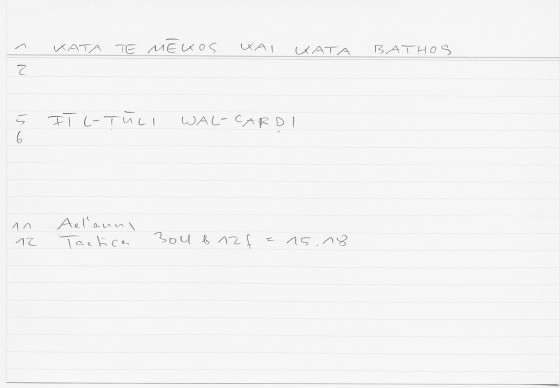 1 KATA TE MĒKOS KAI KATA BATHOS
2
5 FĪ L-ṬŪLI WAL-CARḌI
6
11 Aelianus
12 Tactica 304 b 12f = 15.18